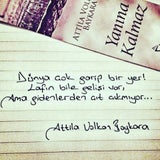 ATTİLA VOLKAN
BAYKARA
Yanına
Kalmaz
Dünya çok garip bir yer!
Lafın bile gelişi var,
Ama gidenlerden çıt çıkmıyor...
Attila Volkan Baykara